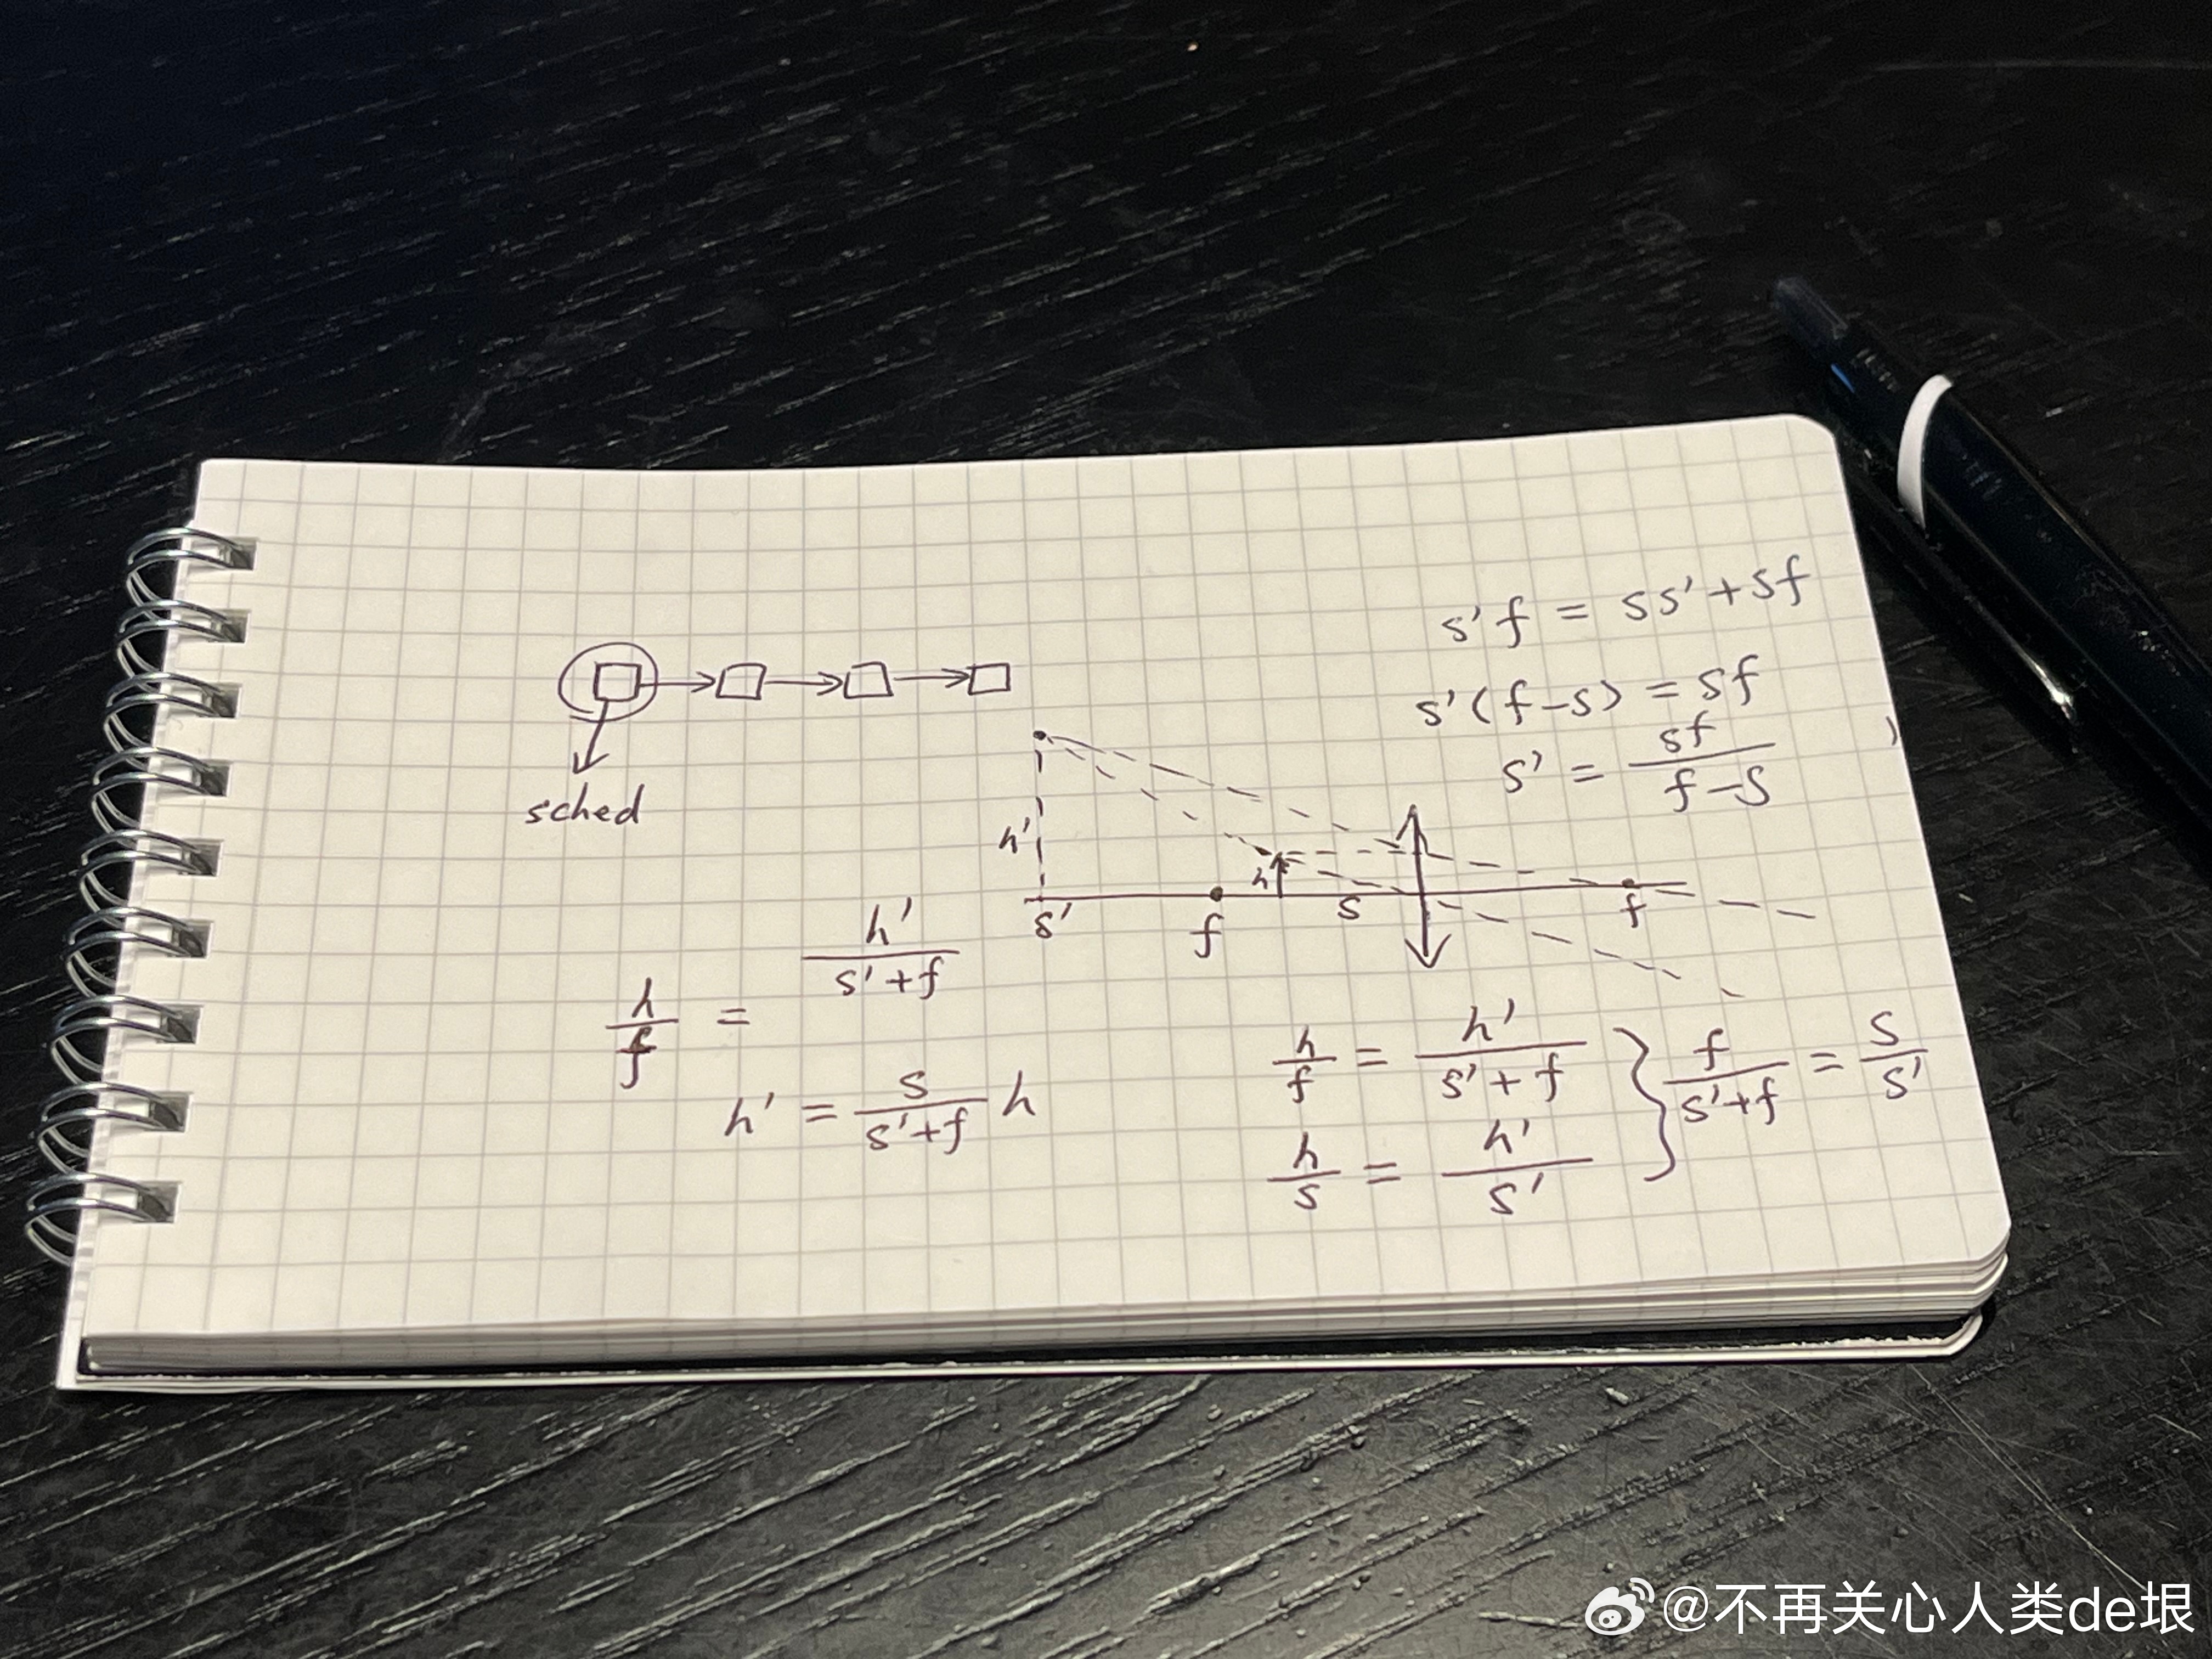 s'f = ss'+sf
s'(f-s) = sf
s' = sf/(f-s)
sched
h'
h
s'
f
s
f
h/f = h'/(s'+f)
h' = s/(s'+f) h
h/f = h'/(s'+f)
h/s = h'/s'
} f/(s'+f) = s/s'
@不再关心人类de垠